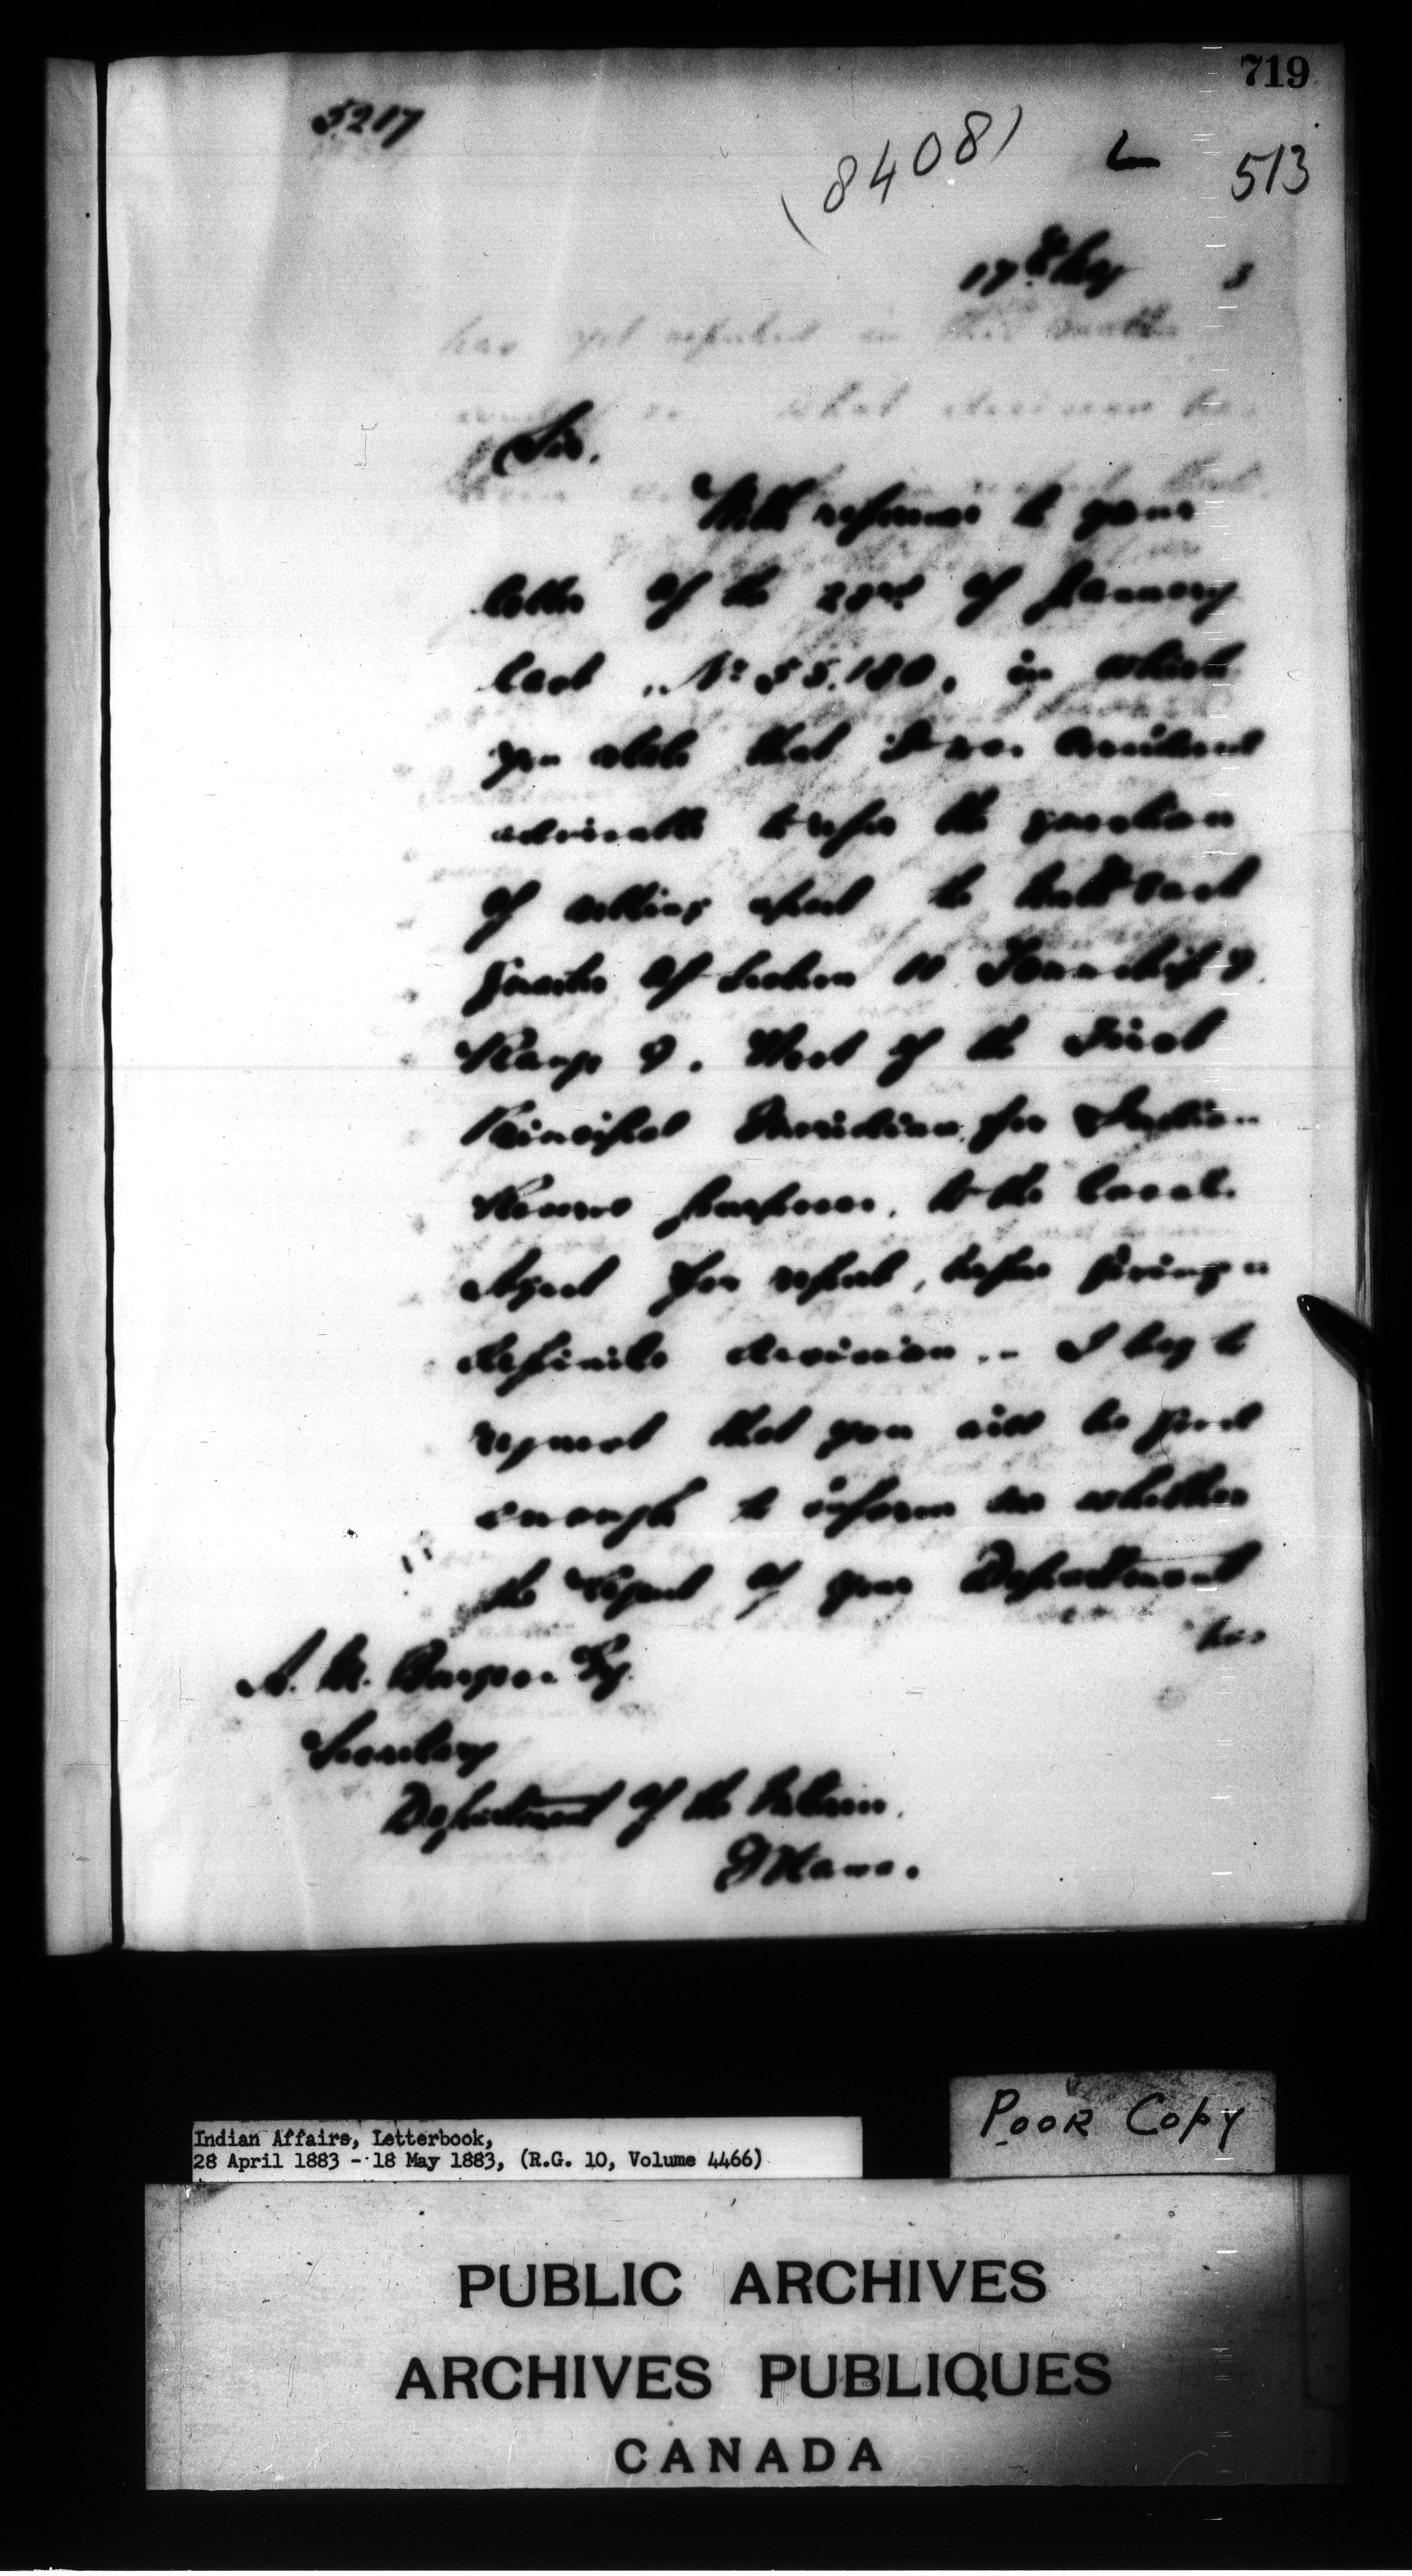 719
5217
(8408)
L
513
17th May 3
Sir,
With reference to your
letter of the of January
last, No 55.180, in which
you state that it was considered
advisable to refer the question
of setting apart the East
quarter of Section 10 Township 9.
Range 9. West of the First
Principal Meridian, for Indian
Reserve purposes, to the local
Agent for report, before giving a
definite decision. I beg to
request that you will be good
enough to inform me whether
the Agent of your Department
has
A. M. Burgess Esq.
Secretary
Department of the Interior,
Ottawa.
Indian Affairs, Letterbook,
28 April 1883 - 18 May 1883, (R.G. 10, Volume 4466)
POOR COPY
PUBLIC ARCHIVES
ARCHIVES PUBLIQUES
CANADA